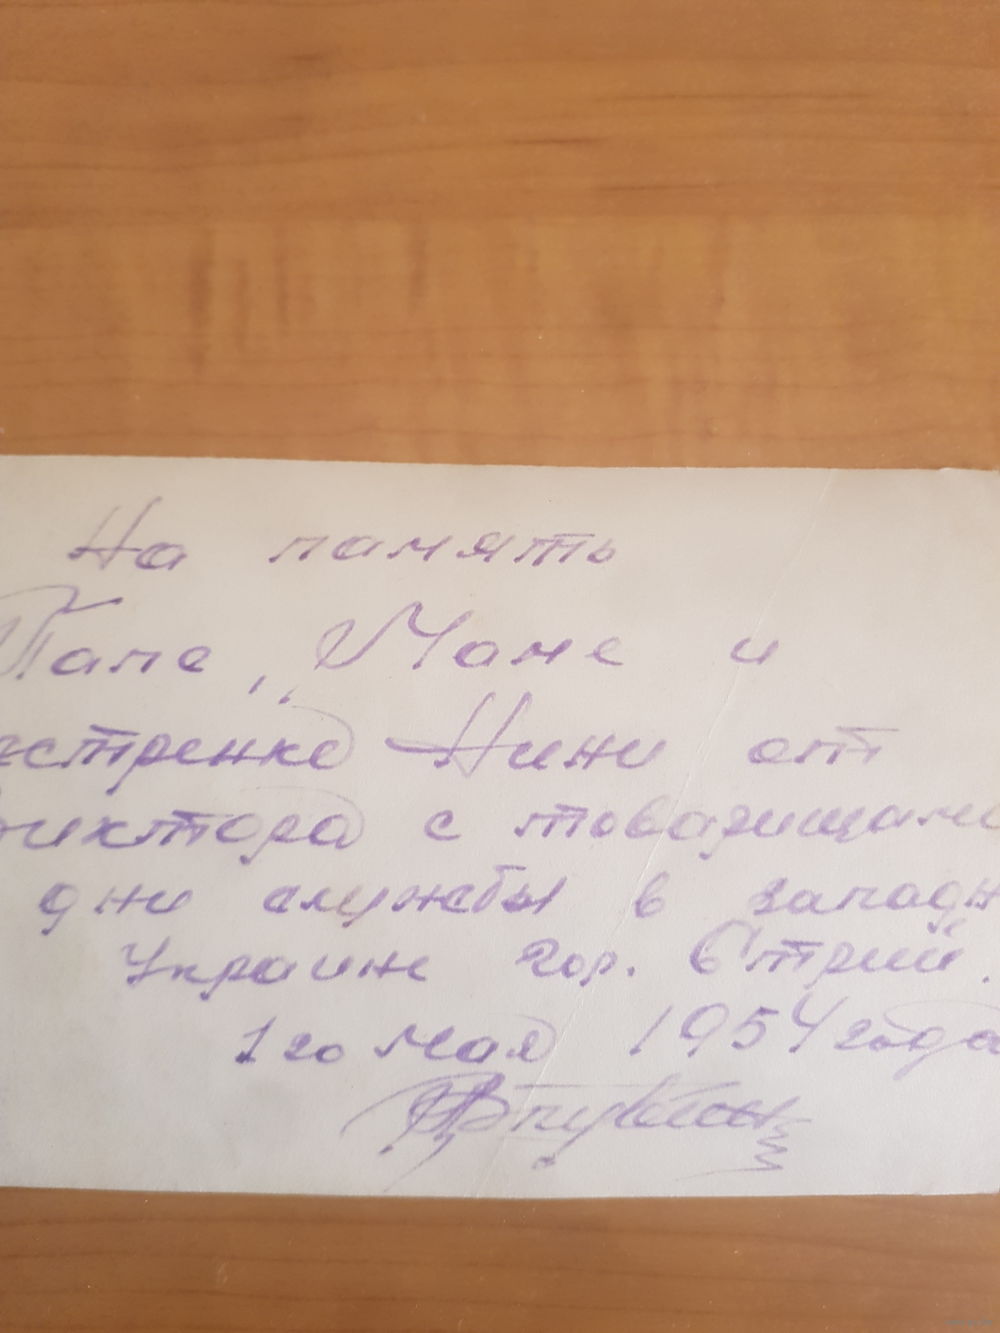 На память
Папе, Маме и
естренке Нине от
Виктора с товарищами
дни службы в западн
Украине гор. Стрий.
1го Мая 1954 года